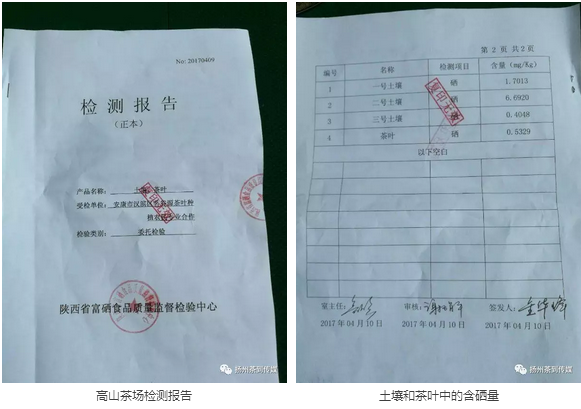 No: 20170409
检测报告
(正本)
产品名称: 土壤、茶叶
受检单位: 安康市汉滨区
茶叶种
植农民专业合作
检验类别: 委托检验
陕西省富硒食品质量监督检验中心
扬州茶到传媒
高山茶场检测报告
第 2 页 共2页
编号 名称 检测项目 含量(mg/Kg)
1 一号土壤 硒 1.7013
2 二号土壤 硒 6.6920
3 三号土壤 硒 0.4048
4 茶叶 硒 0.5329
以下空白
复印无效
室主任: 审核: 签发人:
2017 年 04 月 10 日 2017 年 04 月 10 日 2017 年 04 月 10 日
扬州茶到传媒
土壤和茶叶中的含硒量